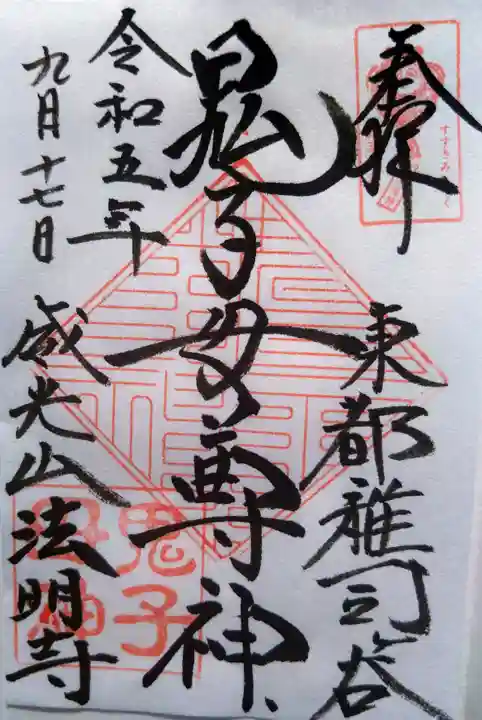 奉拝
すすきみみずく
東都雑司ヶ谷
鬼子母尊神
令和五年
九月十七日
威光山法明寺
鬼子
母神